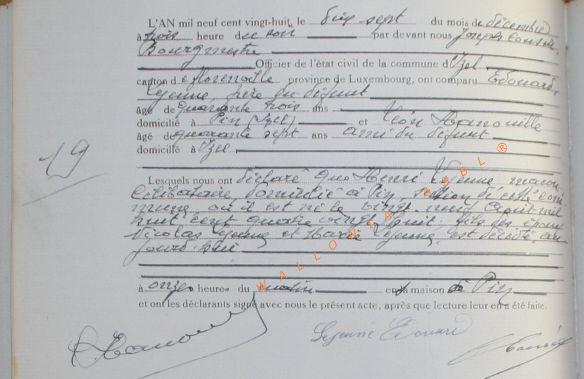 L'AN mil neuf cent vingt-huit, le dix sept du mois de décembre
à trois heure du soir par devant nous Joseph
Bourgmestre
Officier de l'état civil de la commune d'Izel
canton de Florenville province de Luxembourg, ont comparu Edouard
Lejeune, père du défunt
âgé de quarante trois ans
domicilié à Pin (Izel) et Léon Hanouille
âgé de quarante sept ans ami du défunt
domicilié à Izel
19
Lesquels nous ont déclaré que Henri Lejeune maçon
célibataire domicilié à Pin section de cette com
mune où il est né le vingt août mil
huit cent quatre vingt huit, fils des époux
Nicolas Lejeune et Maria Lejeune, est décédé au
jourd'hui
à onze heures du matin en maison à Pin
et ont les déclarants signé avec nous le présent acte, après que lecture leur en a été faite.
Lejeune Edouard
WALLONIA ASBL ®